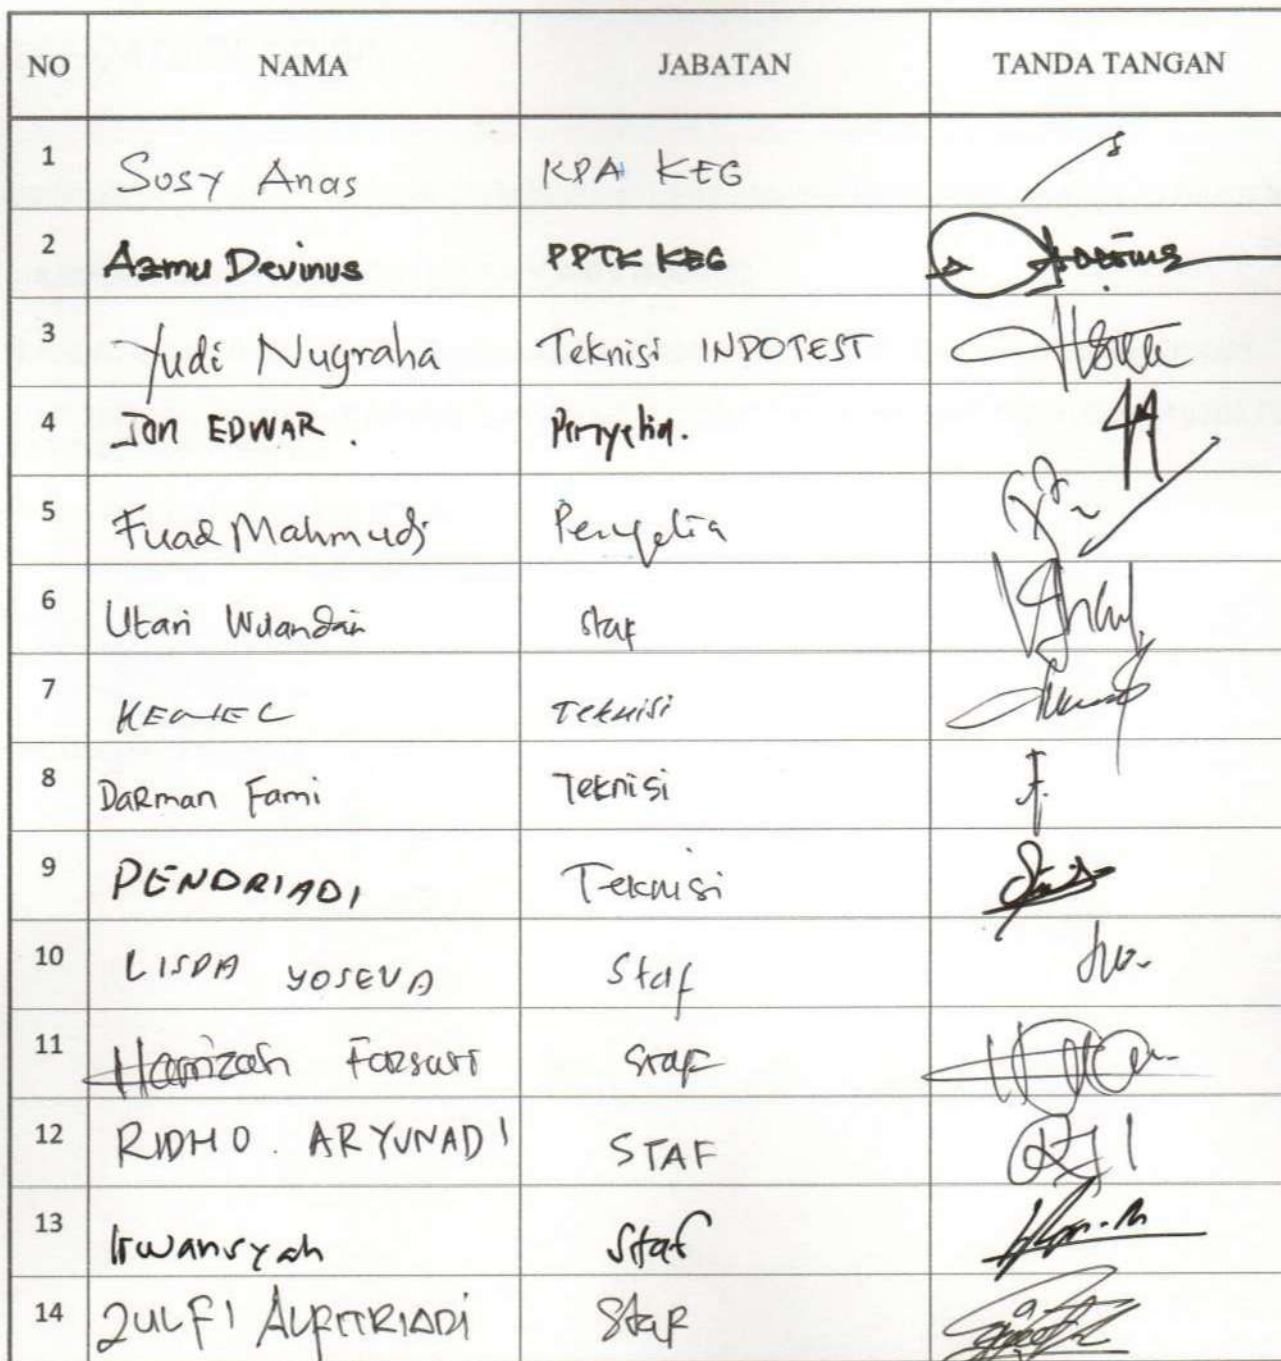 NO NAMA JABATAN TANDA TANGAN
1 Susy Anas KPA KEG
2 Azmu Devinus PPTK KEG
3 Yudi Nugraha Teknisi INDOTEST
4 Jon EDWAR. Penyelia.
5 Fuad Mahmudi Penyelia
6 Utari Wulandari Staf
7 Teknisi
8 DaRman Fami Teknisi
9 PENDRIADI Teknisi
10 LISDA YOSEVA Staf
11 Hamizah Staf
12 RIDHO. ARYUNADI STAF
13 Irwansyah Staf
14 ZULFI Staf